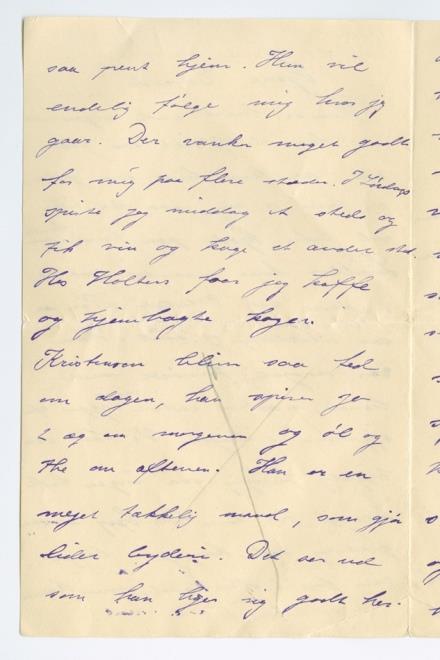 saa pent hjem. Hun vil
endelig følge mig hvor jeg
gaar. Der vanker meget godt
for mig paa flere steder. I Lördags
spiste jeg middag et steds og
fik vin og kage et andet sted.
Hos Holters faar jeg kaffe
og hjembagte kager.
Kristensen bliver saa fed
om dagen, han spiser jo
2 æg om morgenen og öl og
the om aftenen. Han er en
meget takkelig mand, som gjör
lider byderi. Det ser ud
som han liger sig godt her.